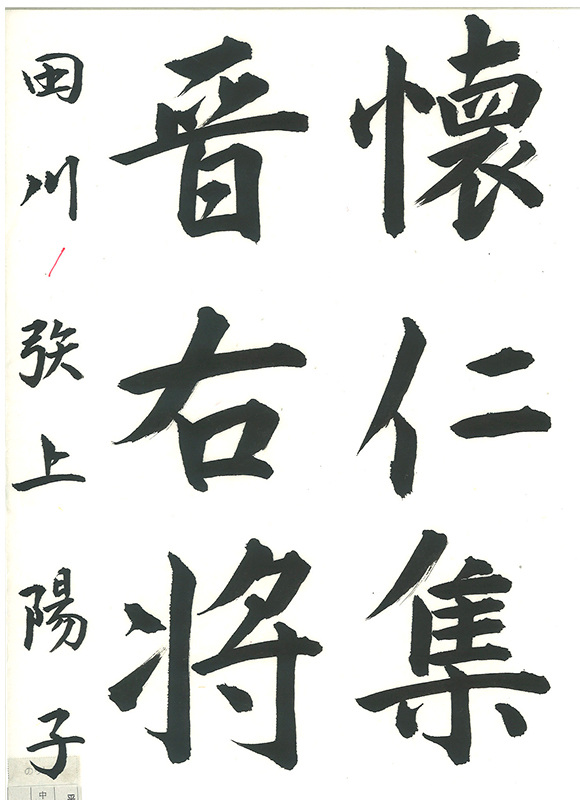 懐仁集
晋右将
田川 弦上陽子